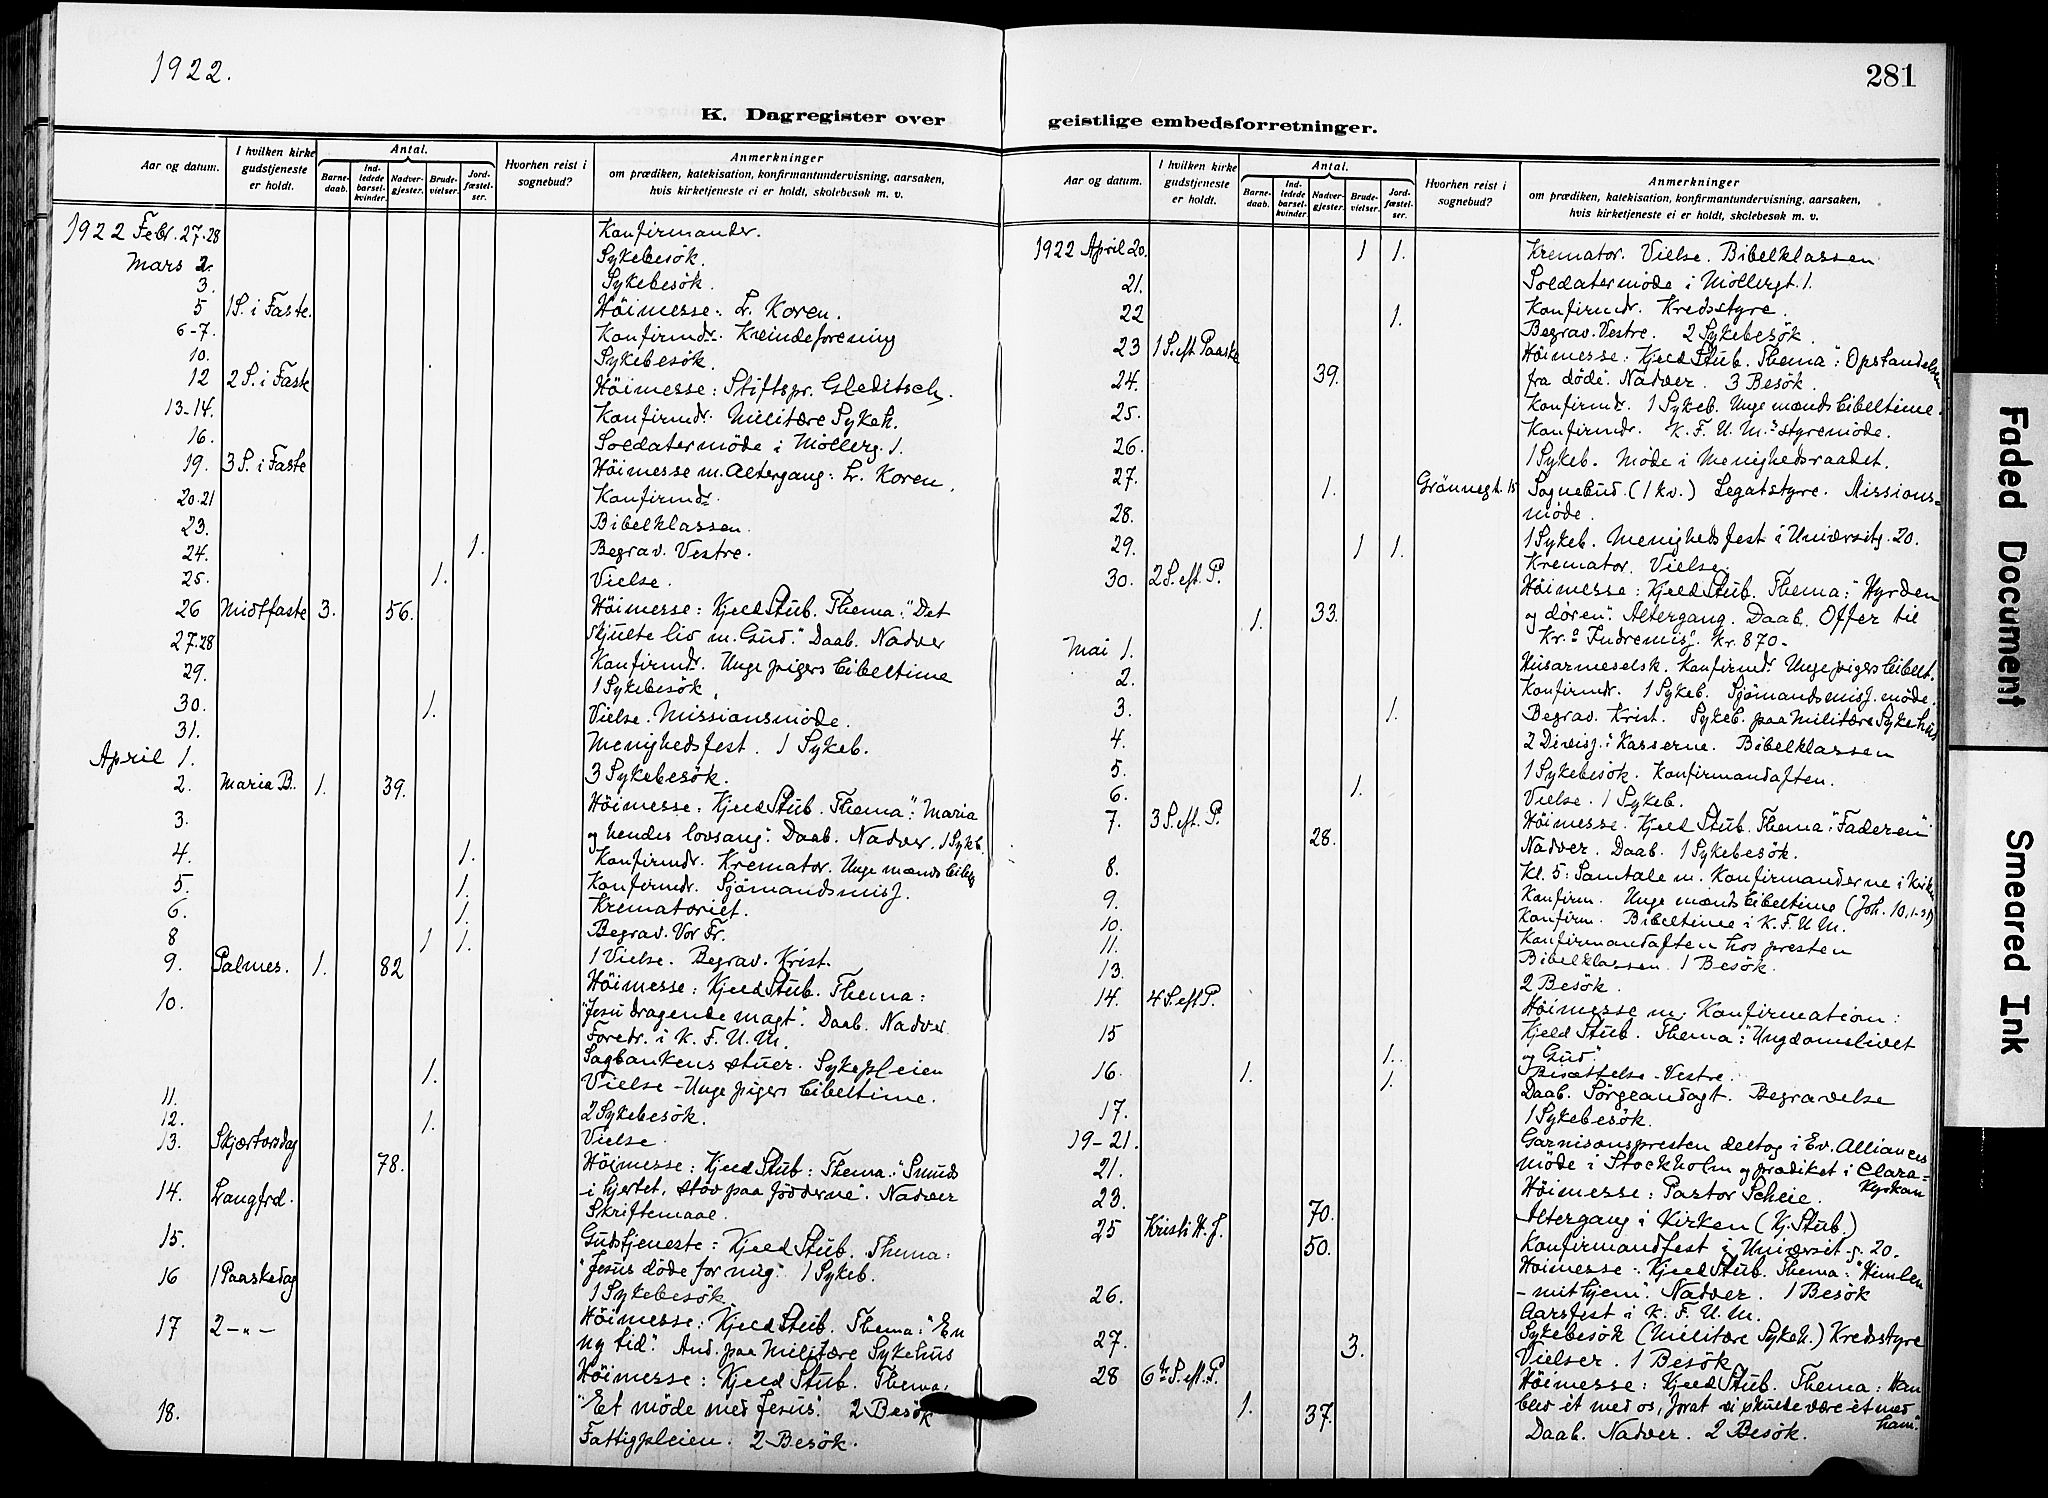 1922.
281
K. Dagregister over geistlige embedsforretninger.
Aar og datum.
I hvilken kirke gudstjeneste er holdt.
Antal.
Barnedaab.
Indledede barselkvinder.
Nadvergjester.
Brudevielser.
Jordfæstelser.
Hvorhen reist i sognebud?
Anmerkninger
om prædiken, katekisation, konfirmantundervisning, aarsaken,
hvis kirketjeneste ei er holdt, skolebesøk m. v.
1922 Febr. 27-28 Konfirmander.
Mars 2. Sykebesök.
3. Sykebesök.
5 1 S. i Faste. Höimesse: Lr. Koren.
6-7. Konfirmdr. Kvindeforening
10. Sykebesök.
12 2 S. i Faste Höimesse: Stiftspr. Gleditsch.
13-14. Konfirmdr. Militære Sykeh.
16. Soldatermöde i Möllerg. 1.
19. 3 S. i Faste Höimesse m. Altergang: Lr. Koren.
20-21 Konfirmdr.
23. Bibelklassen.
24. 1. Begrav. Vestre.
25. 1. Vielse.
26 Midtfaste 3. 56. Höimesse: Kjeld Stub. Thema: "Det
skjulte liv m. Gud." Daab. Nadver
27-28 Konfirmdr. Unge pigers bibeltime
29. 1 Sykebesök.
30. 1. Vielse. Missionsmöde.
31. Menighedsfest. 1 Sykeb.
April 1. 3 Sykebesök.
2. Maria B. 1. 39. Höimesse: Kjeld Stub. Thema: "Maria
og hendes lovsang". Daab. Nadver. 1 Sykb.
3. Konfirmdr. Kremator. Unge mænds bibelt
4. 1. Konfirmdr. Sjömandsmisj.
5. 1. Krematoriet.
6. 1. Begrav. Vor Fr.
8 1 1. 1 Vielse. Begrav. Krist.
9. Palmes. 1. 82 Höimesse: Kjeld Stub. Thema:
"Jesu dragende magt". Daab. Nadver.
Foredr. i K. F. U. M.
10. Sagbankens stuer. Sykepleien
1. Vielse - Unge pigers bibeltime.
11. 2 Sykebesök.
12. 1. Vielse.
13. Skjærtorsdag 78. Höimesse: Kjeld Stub: Thema: "Smuds
i hjertet, støv paa födderne". Nadver
Skriftemaal.
14. Langfrd. Gudstjeneste: Kjeld Stub. Thema:
"Jesus döde for mig". 1 Sykeb.
15. 1 Sykebesök
16 1 Paaskedag Höimesse: Kjeld Stub. Thema: "En
ny tid". And. paa Militære Sykehus
17 2 -"- Höimesse: Kjeld Stub. Thema:
"Et möde med Jesus". 2 Besök
18. Fattigpleien. 2 Besök.
Aar og datum.
I hvilken kirke gudstjeneste er holdt.
Antal.
Barnedaab.
Indledede barselkvinder
Nadvergjester.
Brudevielser.
Jordfæstelser.
Hvorhen reist i sognebud?
Anmerkninger
om prædiken, katekisation, konfirmantundervisning, aarsaken,
hvis kirketjeneste ei er holdt, skolebesøk m. v.
1922 April 20. 1 1. Kremator. Vielse. Bibelklassen
21. Soldatermöde i Möllergt. 1.
22 1. Konfirmdr. Kredsstyre.
Begrav. Vestre. 2 Sykebesök.
23 1 S. eft. Paaske 39. Höimesse: Kjeld Stub. Thema: "Opstandelsen
fra döde". Nadver. 3 Besök.
24. Konfirmdr. 1 Sykeb. Unge mænds bibeltime.
25. Konfirmdr. K. F. U. M.s styremöde.
26. 1 Sykeb. Möde i Menighedsraadet.
27. 1. Grönnegt. 15 Sognebud. (1 kv.) Legatstyre. Missions=
möde.
28. 1 Sykeb. Menighedsfest i Universitg. 20.
29. 1 1. Kremator. Vielse.
30. 2 S. eft. P. 1. 33. Höimesse: Kjeld Stub. Thema: "Hyrden
og dören". Altergang. Daab. Offer til
Kr.a Indremisj. Kr. 870.-
Mai 1. Husarmeselsk. Konfirmdr. Unge pigers bibelt.
2. Konfirmdr. 1 Sykeb. Sjömandsmisj. möde.
3. 1. Begrav. Krist. Sykeb. paa Militære Sykehus
4. 2 Divisj.s Kasserne. Bibelklassen
5. 1 Sykebesök. Konfirmandaften.
6. 1. Vielse. 1 Sykeb.
7. 3 S. eft. P. 28. Höimesse. Kjeld Stub. Thema: "Faderen"
Nadver. Daab. 1 Sykebesök.
8. Kl. 5: Samtale m. Konfirmanderne i Kirken
9. Konfirm. Unge mænds bibeltime (Joh. 10, 1-21)
10. Konfirm. Bibeltime i K. F. U. M.
11. Konfirmandaften hos presten
Bibelklassen. 1 Besök.
13. 2 Besök.
14. 4 S. eft P. Höimesse m. Konfirmation:
Kjeld Stub. Thema: "Ungdomslivet
og Gud".
15 1. Bisættelse - Vestre.
16. 1. 1. Daab. Sörgeandagt. Begravelse
17. 1 Sykebesök.
19-21. Garnisonspresten deltog i Ev. Alliances
möde i Stockholm og prædiket i Clara=
Kyrkan
21. Höimesse: Pastor Scheie.
70. Altergang i Kirken (Kj. Stub.)
23. Konfirmandfest i Universit.g. 20.
25 Kristi H. f. 50. Höimesse: Kjeld Stub. Thema: "Himlen
- mit hjem". Nadver. 1 Besök
Aarsfest i K. F. U. M.
26. Sykebesök (Militære Sykeh.) Kredsstyre
27. 3. Vielser. 1 Besök
28 6te S. eft. P. 1. 37. Höimesse: Kjeld Stub. Thema: "Han
blev ét med os, forat vi skulde være ét med
ham".
Daab. Nadver. 2 Besök.
Faded Document
Smeared Ink